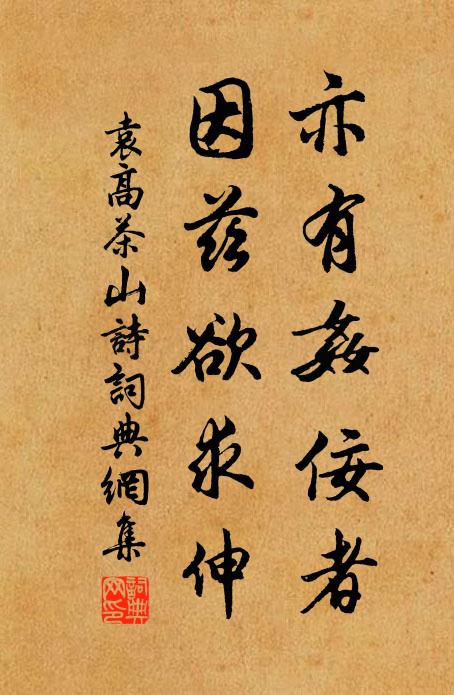 亦有姦佞者
因茲欲求伸
袁高茶山詩詞典網集
詞典網印